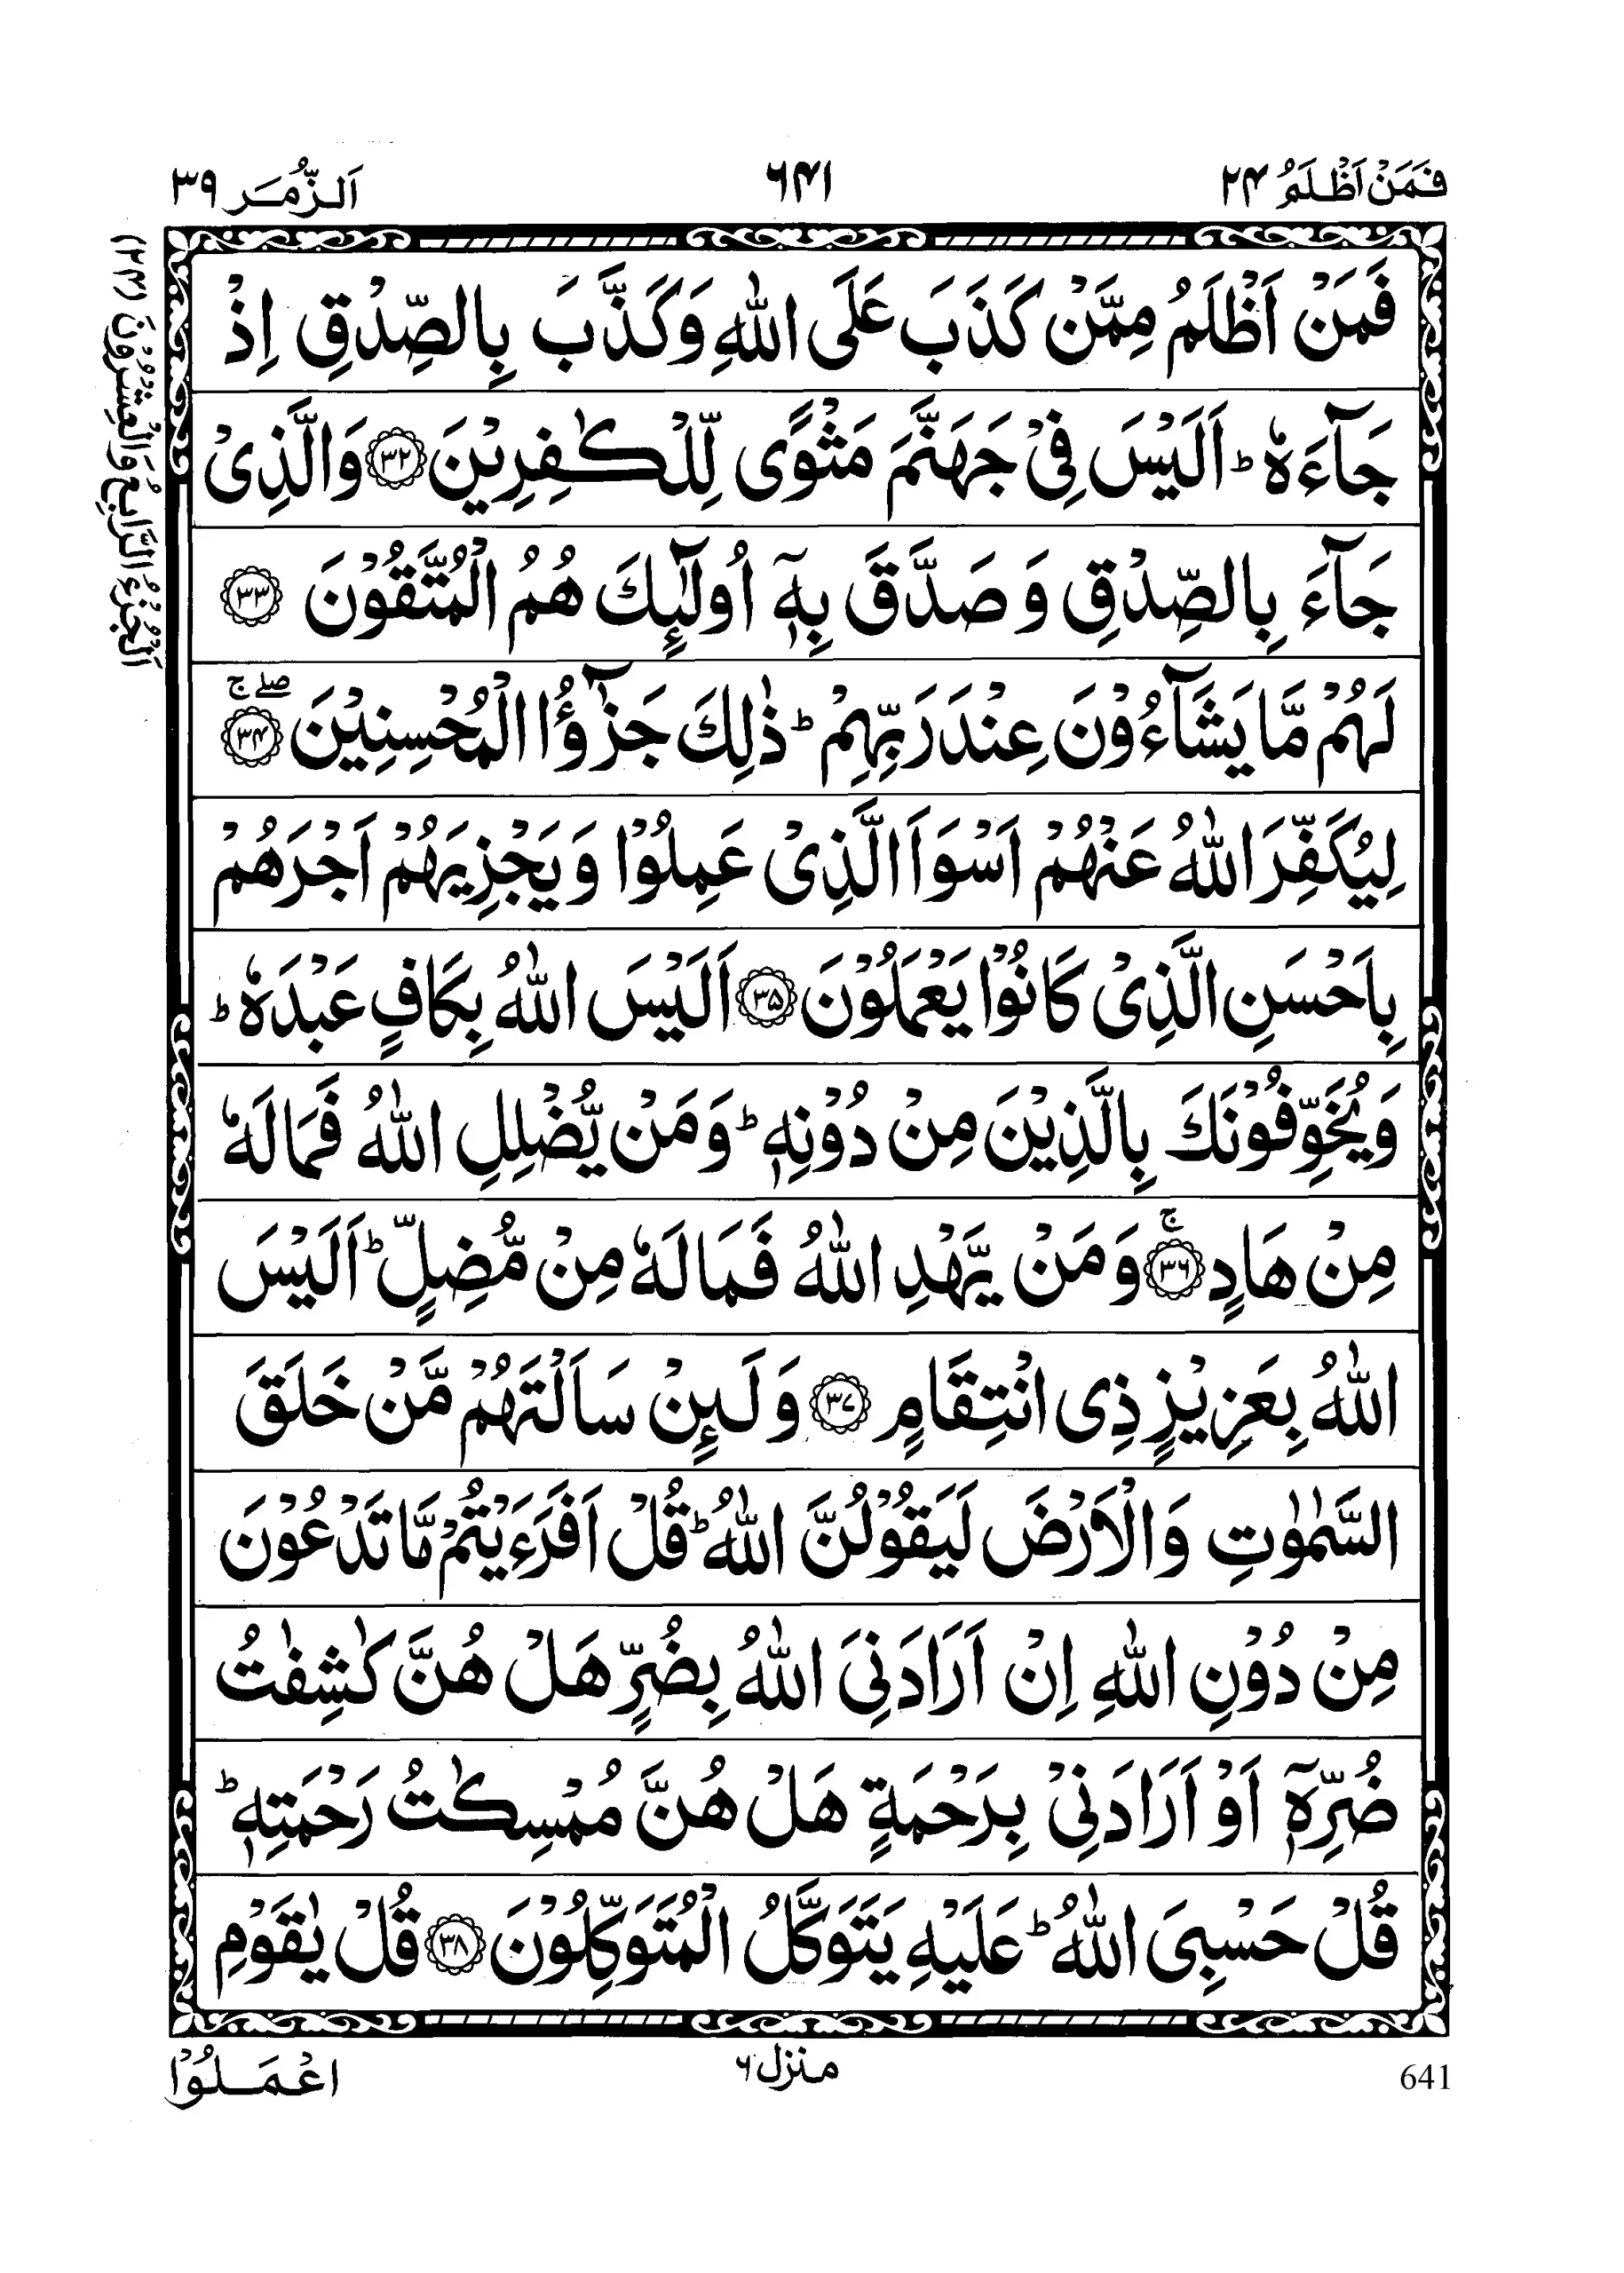 فَمَنْ اَظْلَمُ ۲۴
۶۴۱
اَلزُّمَر ۳۹
اَلْجُزْءُ الرَّابِعُ وَالْعِشْرُوْنَ (۲۴)
فَمَنْ اَظْلَمُ مِمَّنْ كَذَبَ عَلَى اللّٰهِ وَكَذَّبَ بِالصِّدْقِ اِذْ
جَآءَهٗ ؕ اَلَيْسَ فِىْ جَهَنَّمَ مَثْوًى لِّلْكٰفِرِيْنَ ﴿۳۲﴾ وَالَّذِىْ
جَآءَ بِالصِّدْقِ وَصَدَّقَ بِهٖۤ اُولٰٓئِكَ هُمُ الْمُتَّقُوْنَ ﴿۳۳﴾
لَهُمْ مَّا يَشَآءُوْنَ عِنْدَ رَبِّهِمْ ؕ ذٰلِكَ جَزٰٓؤُا الْمُحْسِنِيْنَ ۖۚ ﴿۳۴﴾
لِيُكَفِّرَ اللّٰهُ عَنْهُمْ اَسْوَاَ الَّذِىْ عَمِلُوْا وَيَجْزِيَهُمْ اَجْرَهُمْ
بِاَحْسَنِ الَّذِىْ كَانُوْا يَعْمَلُوْنَ ﴿۳۵﴾ اَلَيْسَ اللّٰهُ بِكَافٍ عَبْدَهٗ ؕ
وَيُخَوِّفُوْنَكَ بِالَّذِيْنَ مِنْ دُوْنِهٖ ؕ وَمَنْ يُّضْلِلِ اللّٰهُ فَمَا لَهٗ
مِنْ هَادٍ ۚ ﴿۳۶﴾ وَمَنْ يَّهْدِ اللّٰهُ فَمَا لَهٗ مِنْ مُّضِلٍّ ؕ اَلَيْسَ
اللّٰهُ بِعَزِيْزٍ ذِى انْتِقَامٍ ﴿۳۷﴾ وَلَئِنْ سَاَلْتَهُمْ مَّنْ خَلَقَ
السَّمٰوٰتِ وَالْاَرْضَ لَيَقُوْلُنَّ اللّٰهُ ؕ قُلْ اَفَرَءَيْتُمْ مَّا تَدْعُوْنَ
مِنْ دُوْنِ اللّٰهِ اِنْ اَرَادَنِىَ اللّٰهُ بِضُرٍّ هَلْ هُنَّ كٰشِفٰتُ
ضُرِّهٖۤ اَوْ اَرَادَنِىْ بِرَحْمَةٍ هَلْ هُنَّ مُمْسِكٰتُ رَحْمَتِهٖ ؕ
قُلْ حَسْبِىَ اللّٰهُ ؕ عَلَيْهِ يَتَوَكَّلُ الْمُتَوَكِّلُوْنَ ﴿۳۸﴾ قُلْ يٰقَوْمِ
641
منزل ۶
اعْمَلُوْا